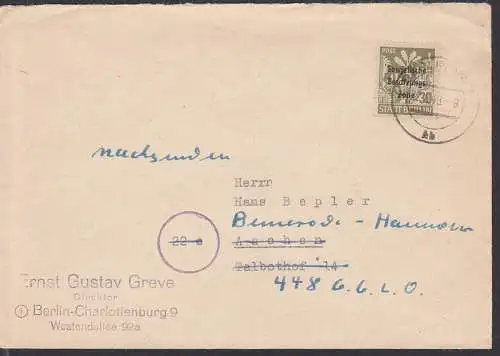 POST
Sowjetische
Besatzungs
Zone
STADT BERLIN
nachsenden
Herrn
Hans Bepler
Bemerode - Hannover
22 c
Aachen
Talbothof 14
448 G.C.L.O.
Ernst Gustav Greve
Direktor
Berlin-Charlottenburg 9
Westendallee 92a